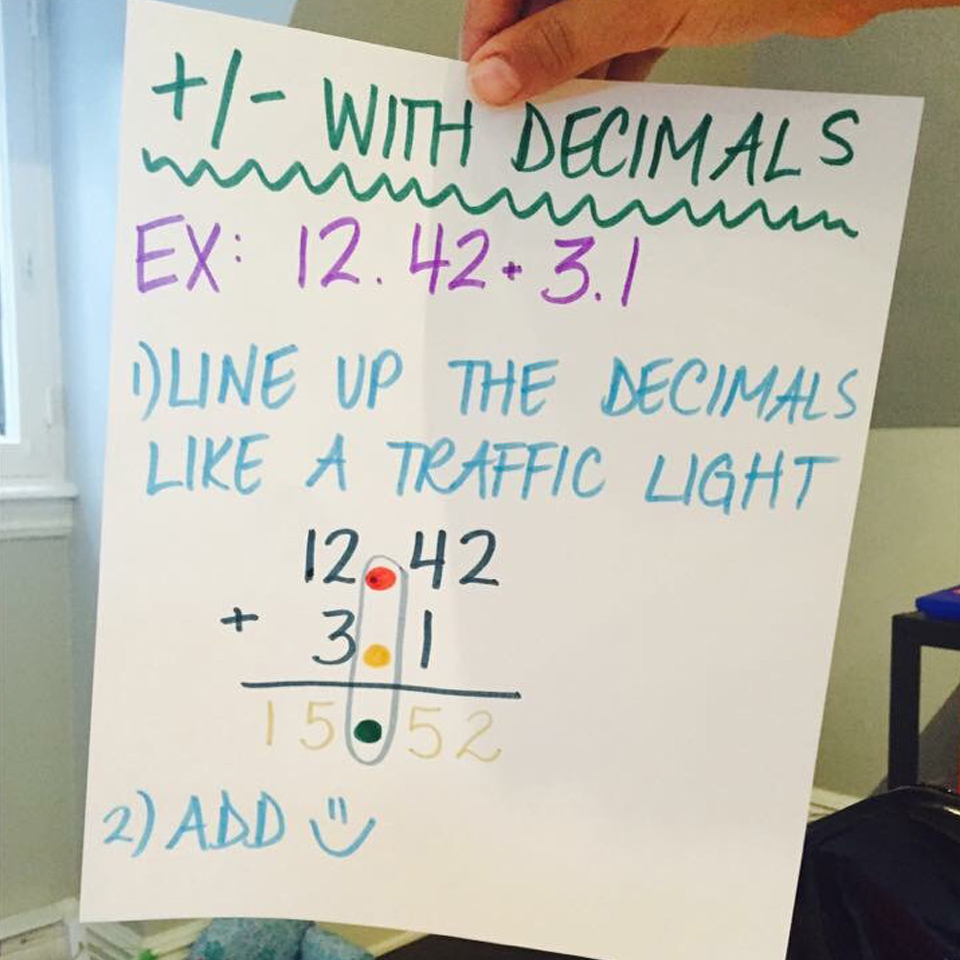 +/- WITH DECIMALS
EX: 12.42+3.1
1) LINE UP THE DECIMALS
LIKE A TRAFFIC LIGHT
12.42
+ 3.1
15.52
2) ADD